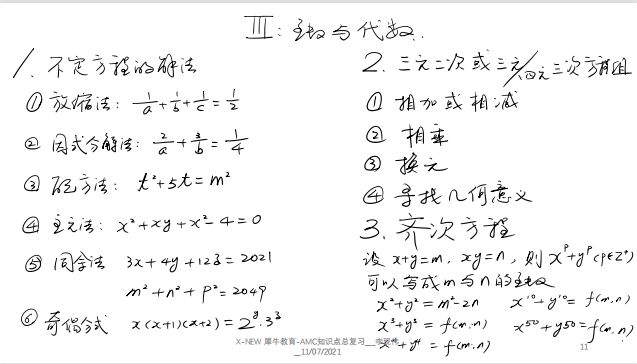 III: 函数与代数.
1. 不定方程的解法
① 放缩法: 1/a + 1/b + 1/c = 1/2
② 因式分解法: 2/a + 3/b = 1/4
③ 配方法: t²+5t=m²
④ 主元法: x²+xy+x²-4=0
⑤ 同余法 3x+4y+12z=2021
m²+n²+p²=2049
⑥ 奇偶分式 x(x+1)(x+2)=2⁸·3³
2. 三元二次或三元/四元三次方程组
① 相加或相减
② 相乘
③ 换元
④ 寻找几何意义
3. 齐次方程
设 x+y=m, xy=n, 则 x^p+y^p (p∈Z⁺)
可以写成m与n的函数
x²+y²=m²-2n x¹⁰+y¹⁰=f(m,n)
x³+y³=f(m,n) x⁵⁰+y⁵⁰=f(m,n).
x⁴+y⁴=f(m,n)
X-NEW 犀牛教育-AMC知识点总复习__
__11/07/2021
11